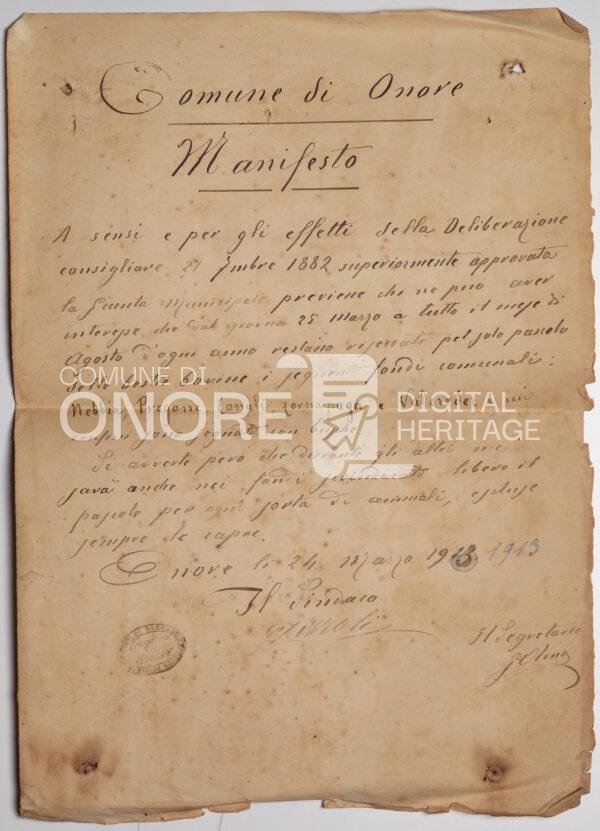 Comune di Onore
Manifesto
A sensi e per gli effetti della Deliberazione
consigliare 27 7mbre 1882 superiormente approvata
la Giunta Municipale previene chi ne può aver
interesse che dal giorno 25 Marzo a tutto il mese di
Agosto d'ogni anno restano riservati pel solo pascolo
delle bestie bovine i seguenti fondi comunali:
Nebbia, Pregone, e Valerie, i cui
confini sono segnati con
Si avverte però che durante gli altri mesi
sarà anche nei fondi libero il
pascolo per ogni sorta di animali, escluse
sempre le capre.
Onore li 24 Marzo 1913 1913
Il Sindaco
Il Segretario
COMUNE DI
ONORE
DIGITAL
HERITAGE